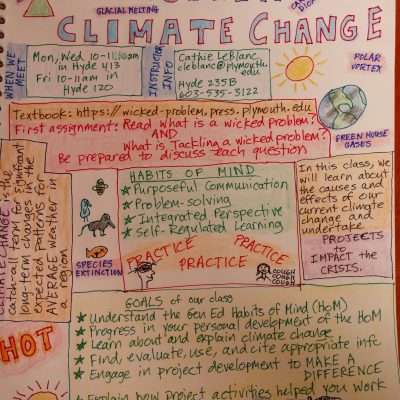 GLACIAL MELTING
CLIMATE CHANGE
WHEN WE MEET
Mon, Wed 10-11:30am
in Hyde 413
Fri 10-11am in
Hyde 120
INSTRUCTOR INFO
Cathie LeBlanc
cleblanc@plymouth.
edu
Hyde 235B
603-535-3122
POLAR
VORTEX
Textbook: https://wicked-problem.press.plymouth.edu
First assignment: Read What is a wicked problem?
AND
What is Tackling a wicked problem?
Be prepared to discuss each question
GREEN HOUSE
GASES
CLIMATE CHANGE is the
catch-all term for significant
long-term changes in the
expected patterns for
AVERAGE weather in
a region
HABITS OF MIND
Purposeful Communication
Problem-solving
Integrated Perspective
Self-Regulated Learning
PRACTICE
PRACTICE
PRACTICE
COUGH
COUGH
COUGH
SPECIES
EXTINCTION
In this class, we
will learn about
the causes and
effects of our
current climate
change and
undertake
PROJECTS
to
IMPACT the
CRISIS.
HOT
GOALS of our class
Understand the Gen Ed Habits of Mind (HoM)
Progress in your personal development of the HoM
Learn about and explain climate change
Find, evaluate, use, and cite appropriate info
Engage in project development to MAKE A
DIFFERENCE
Explain how project activities helped you work